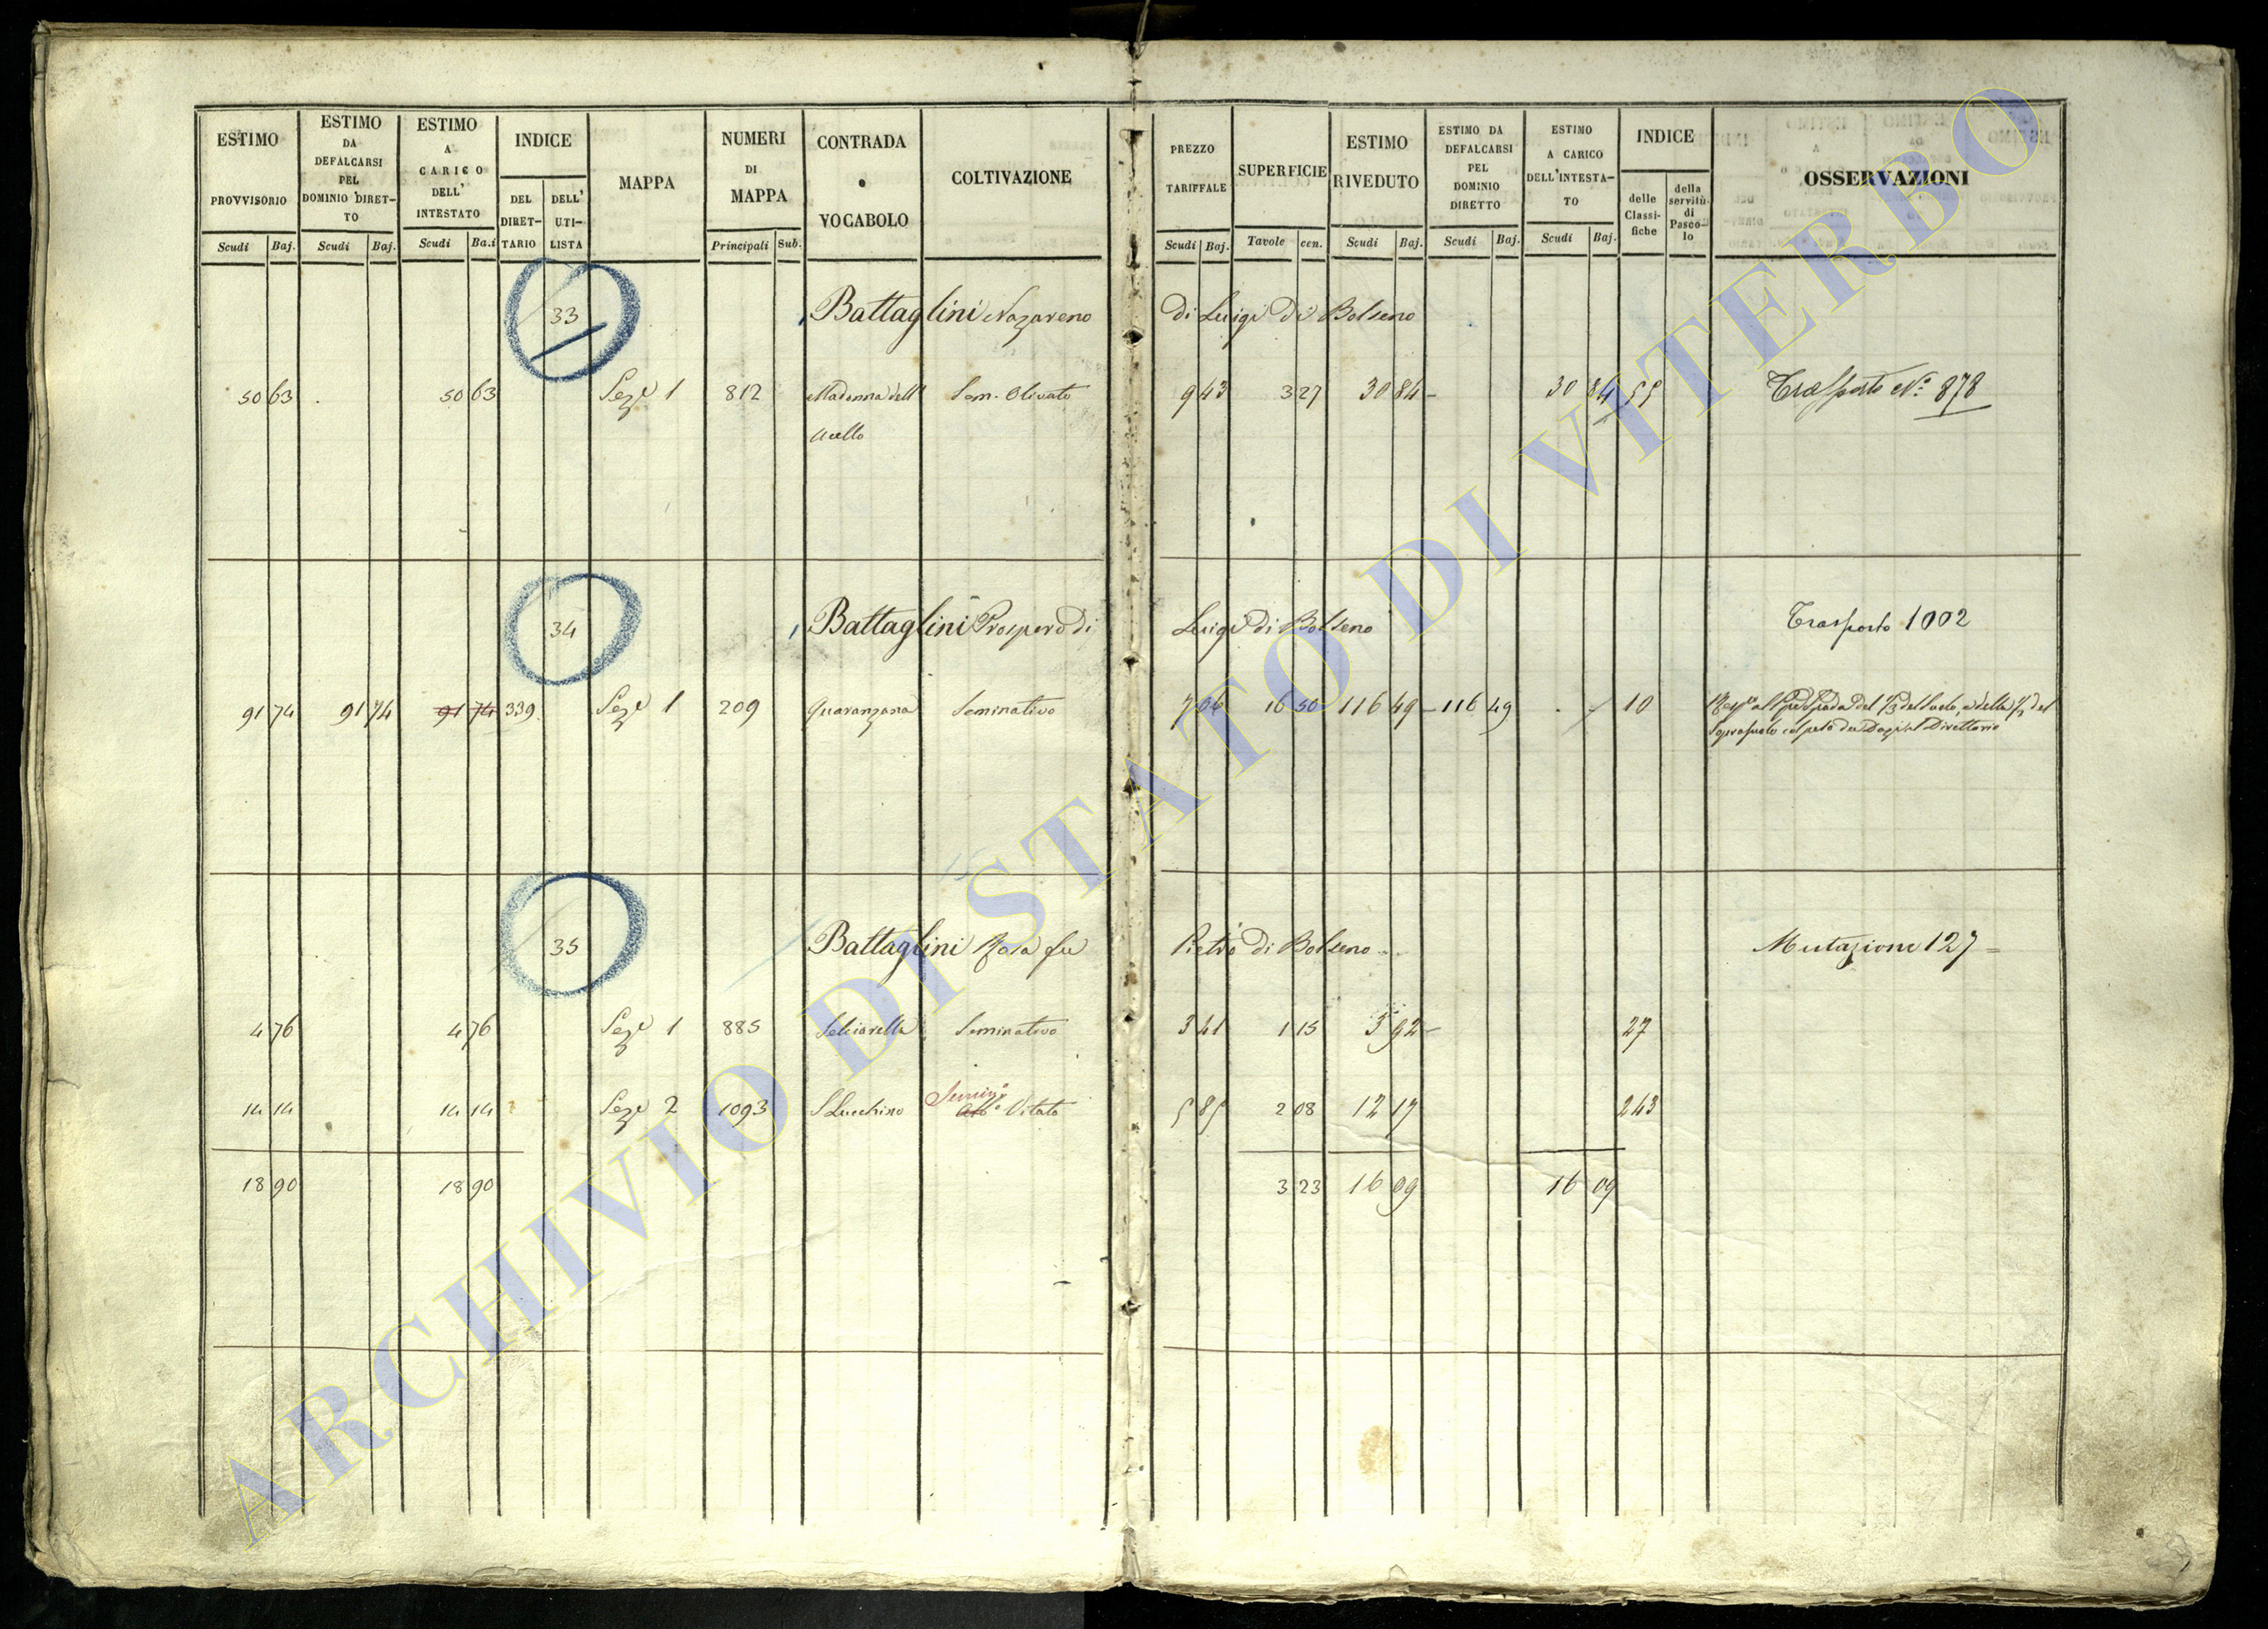 ESTIMO PROVVISORIO Scudi Baj.
ESTIMO DA DEFALCARSI PEL DOMINIO DIRET-TO Scudi Baj.
ESTIMO A CARICO DELL' INTESTATO Scudi Ba.i
INDICE DEL DIRET-TARIO DELL' UTI-LISTA
MAPPA
NUMERI DI MAPPA Principali Sub.
CONTRADA o VOCABOLO
COLTIVAZIONE
PREZZO TARIFFALE Scudi Baj.
SUPERFICIE Tavole cen.
ESTIMO RIVEDUTO Scudi Baj.
ESTIMO DA DEFALCARSI PEL DOMINIO DIRETTO Scudi Baj.
ESTIMO A CARICO DELL'INTESTA-TO Scudi Baj.
INDICE delle Classi-fiche della servitù di Pasco-lo
OSSERVAZIONI
33 Battaglini Nazareno di Luigi di Bolseno
50 63 50 63 Seze 1 812 Madonna dell' Sem. Olivato 9 43 3 27 30 84 - 30 84 55 Trasporto N.º 878
Ucello
34 Battaglini Prospero di Luigi di Bolseno Trasporto 1002
91 74 91 74 91 74 339 Seze 1 209 Quaranzana Seminativo 7 06 16 50 116 49 - 116 49 10
35 Battaglini Rosa fu Pietro di Bolseno Mutazione 127 =
4 76 4 76 Seze 1 885 Selciarella Seminativo 3 41 1 15 3 92 - 27
14 14 14 14 Seze 2 1093 S Lucchino Vitato 5 85 2 08 12 17 243
18 90 18 90 3 23 16 09 16 09
ARCHIVIO DI STATO DI VITERBO